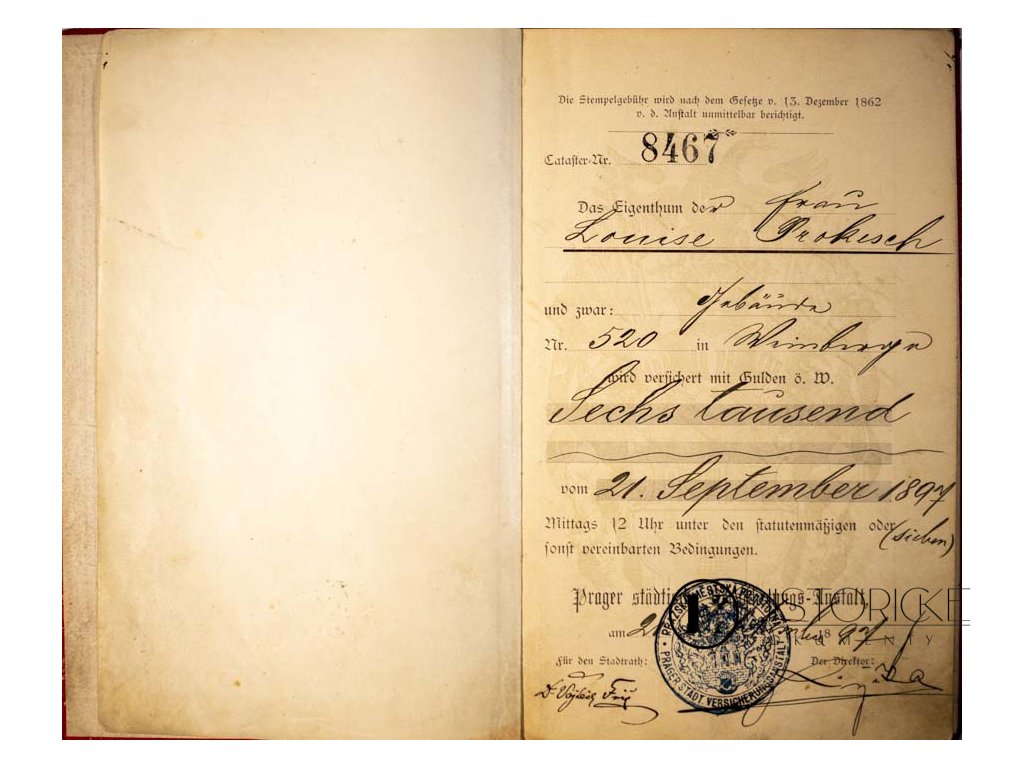 Die Stempelgebühr wird nach dem Gesetze v. 13. Dezember 1862
v. d. Anstalt unmittelbar berichtigt.
Cataster-Nr. 8467
Das Eigenthum der Frau
Louise Prokesch
und zwar: Gebäude
Nr. 520 in Weinberge
wird versichert mit Gulden ö. W.
Sechs tausend
vom 21. September 1897
Mittags 12 Uhr unter den statutenmäßigen oder (sieben)
sonst vereinbarten Bedingungen.
Prager städtische Anstalt,
am 18 97
Für den Stadtrath: Der Direktor:
PRAGER STÄDT. VERSICHERUNGSANSTALT